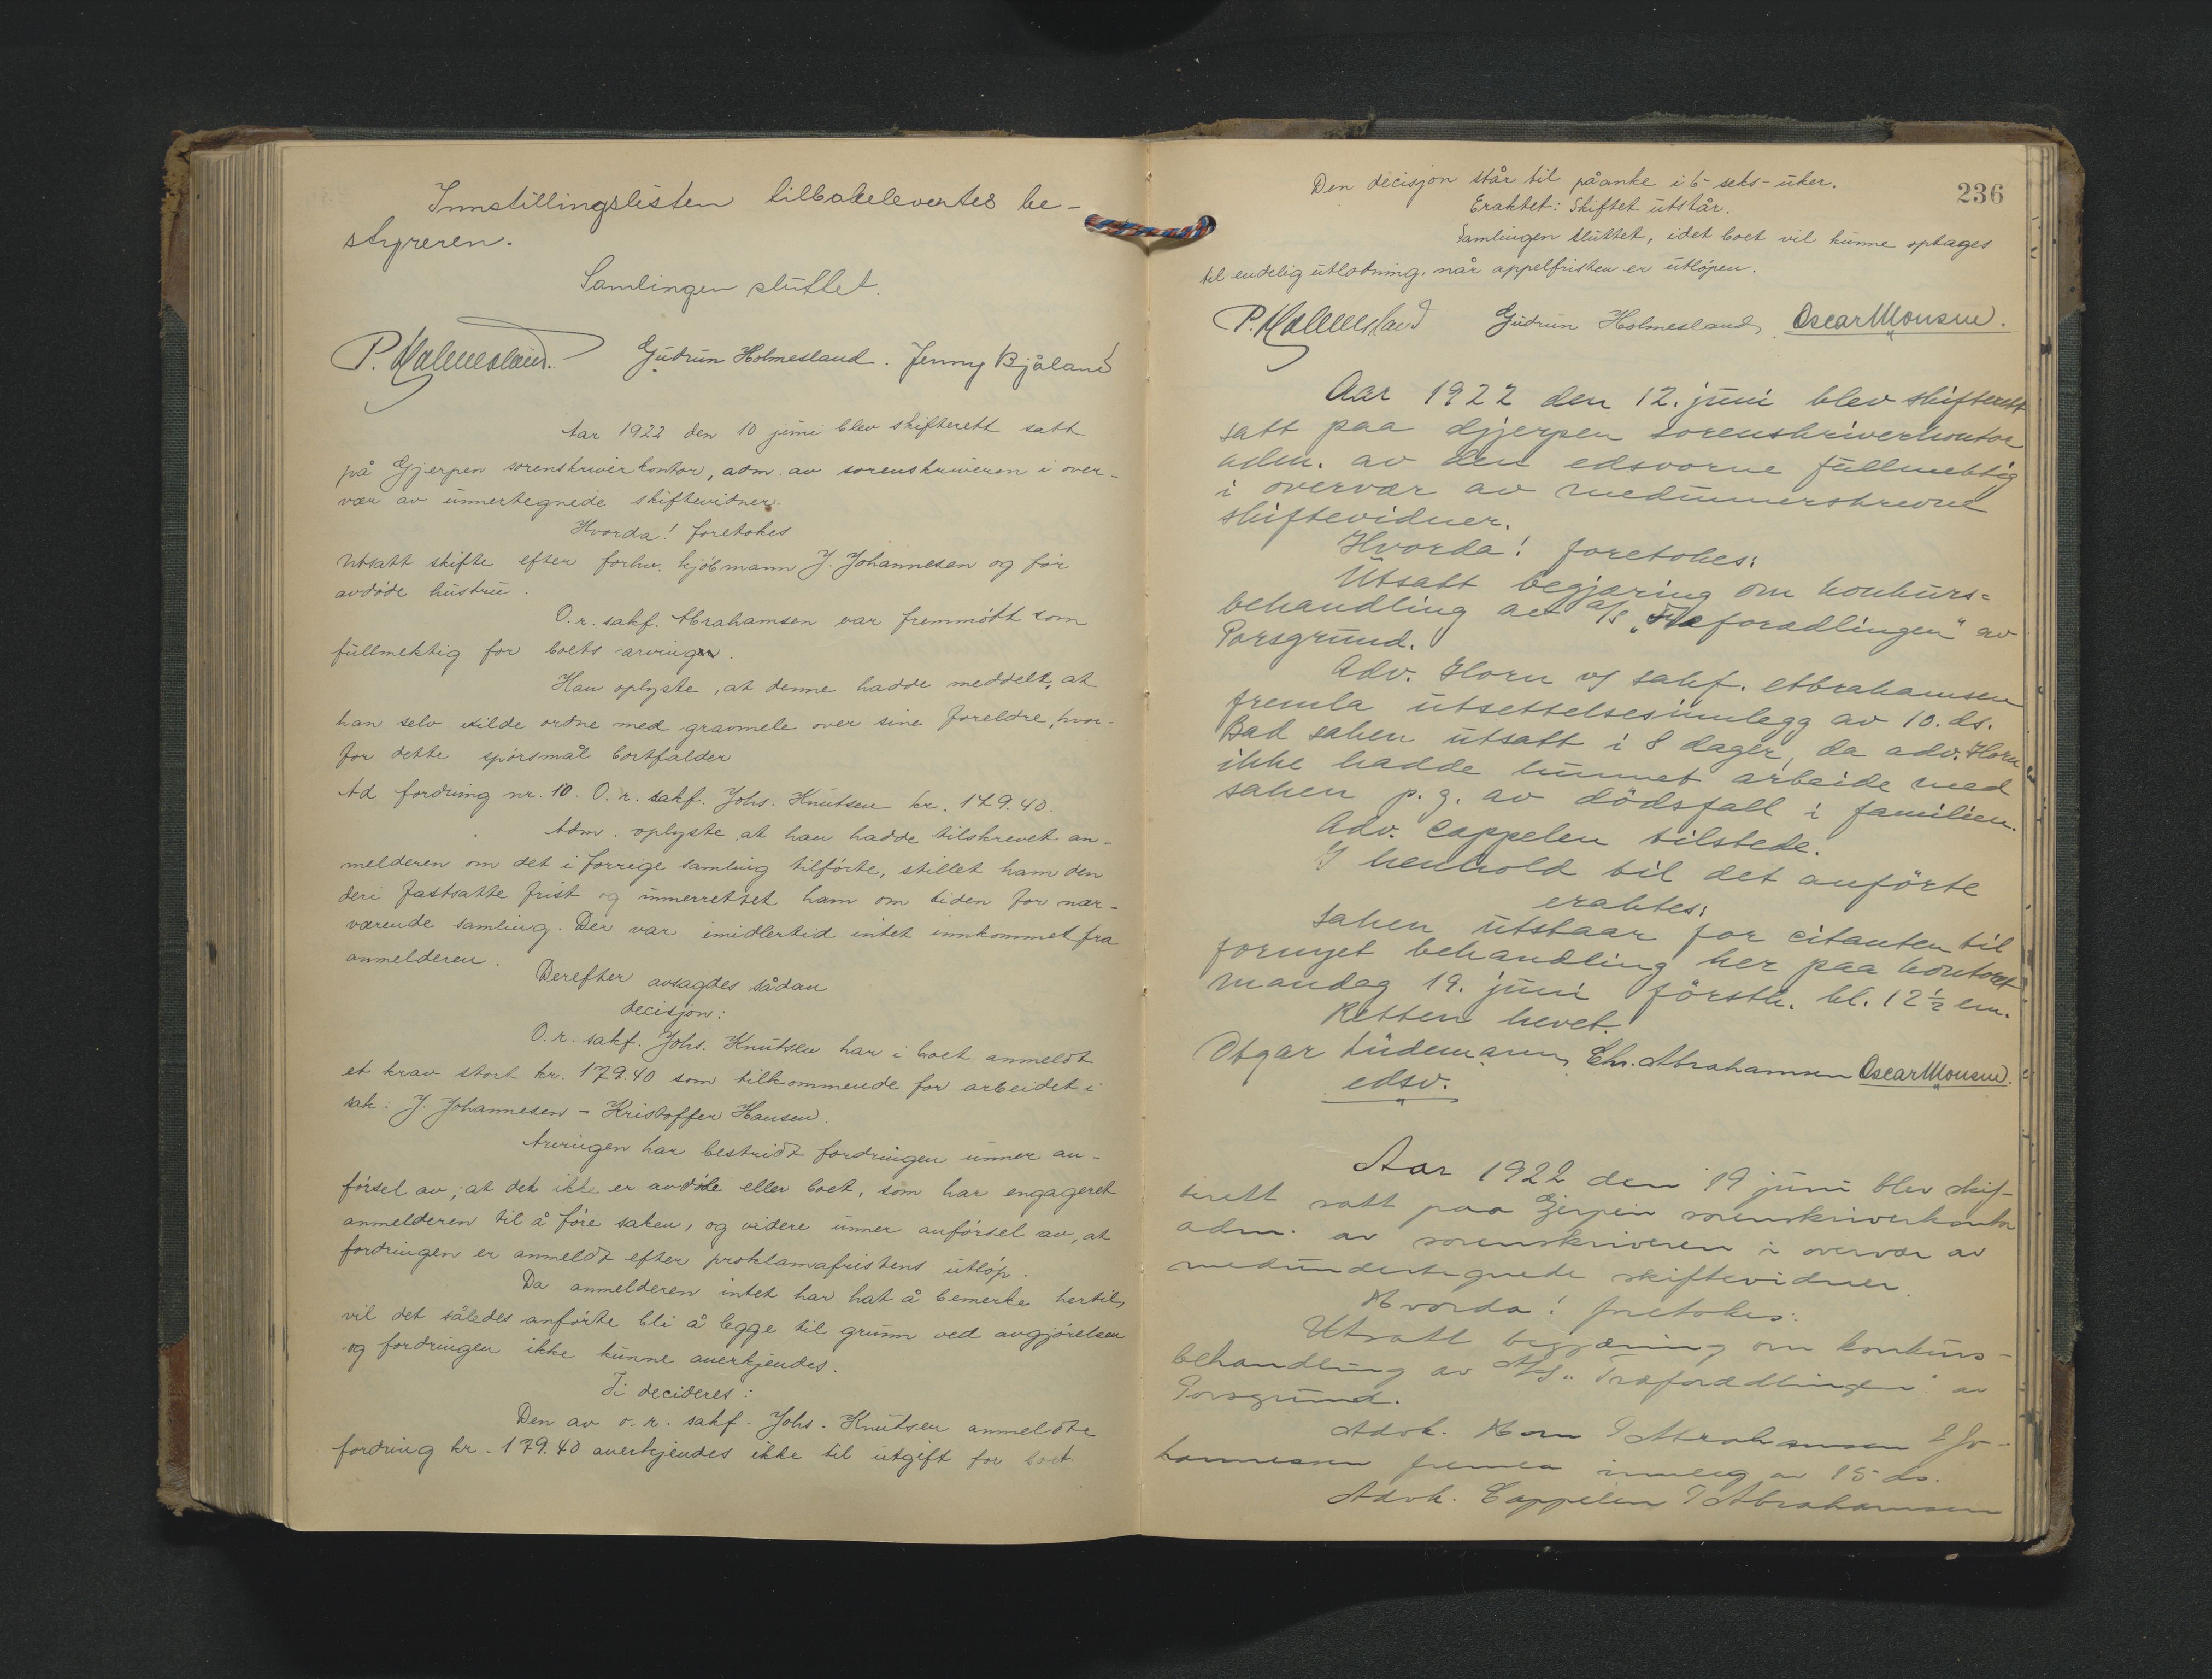 Innstillingslisten tilbakelevertes be-
styreren.
Samlingen sluttet.
P. Holmesland. Gudrun Holmesland. Jenny Bjåland
Aar 1922 den 10 juni blev skifterett satt
på Gjerpen sorenskriverkontor, adm. av sorenskriveren i over-
vær av unnertegnede skiftevidner.
Hvorda! foretokes
Utsatt skifte efter forhv. kjøbmann J. Johannesen og før
avdøde hustru.
O.r. sakf. Abrahamsen var fremmøtt som
fullmektig for boets arving.
Han oplyste, at denne hadde meddelt, at
han selv vilde ordne med gravmele over sine foreldre, hvor-
for dette spørsmål bortfalder
Ad fordring nr. 10. O.r. sakf. Johs. Knutsen kr. 179.40.
Adm. oplyste at han hadde tilskrevet an-
melderen om det i forrige samling tilførte, stillet ham den
deri fastsatte frist og unnerrettet ham om tiden for nær-
værende samling. Der var imidlertid intet innkommet fra
anmelderen.
Derefter avsagdes sådan
decisjon:
O.r. sakf. Johs. Knutsen har i boet anmeldt
et krav stort kr. 179.40 som tilkommende for arbeidet i
sak: J. Johannesen - Kristoffer Hansen.
Arvingen har bestridt fordringen unner an-
førsel av, at det ikke er avdøde eller boet, som har engageret
anmelderen til å føre saken, og videre unner anførsel av, at
fordringen er anmeldt efter proklamafristens utløp.
Da anmelderen intet har hat å bemerke hertil,
vil det således anførte bli å legge til grunn ved avgjørelsen
og fordringen ikke kunne anerkjendes.
Ti decideres:
Den av o.r. sakf. Johs. Knutsen anmeldte
fordring kr. 179.40 anerkjendes ikke til utgift for boet.
236
Den decisjon står til påanke i 6-seks-uker.
Eraktet: Skiftet utstår.
Samlingen sluttet, idet boet vil kunne optages
til endelig utlodning, når appelfristen er utløpen.
P. Holmesland Gudrun Holmesland, Oscar Monsen.
Aar 1922 den 12. juni blev skifterett
satt paa Gjerpen sorenskriverkontor
adm. av den edsvorne fullmektig
i overvær av medunnerskrevne
skiftevidner.
Hvorda! foretokes:
Utsatt begjæring om konkurs=
behandling av a/s "Træforædlingen" av
Porsgrund.
Adv. Horn v/ sakf. Abrahamsen
fremla utsettelsesinnlegg av 10. ds.
Bad saken utsatt i 8 dager, da adv. Horn
ikke hadde kunnet arbeide med
saken p.g. av dödsfall i familien.
Adv. Cappelen tilstede.
I henhold til det anförte
eraktes:
Saken utstaar for citanten til
fornyet behandling her paa kontoret
mandag 19. juni förstk. kl. 12 ½ em.
Retten hevet.
Otgar Lüdemann, Chr. Abrahamsen Oscar Monsen.
edsv.
Aar 1922 den 19 juni blev skif-
terett satt paa Gjerpen sorenskriverkontor
adm. av sorenskriveren i overvær av
medundertegnede skiftevidner.
Hvorda! foretokes:
Utsatt begjæring om konkurs-
behandling av A/S "Træforædlingen" av
Porsgrund.
Advk. Horn v/ Abrahamsen v/ Jo-
hannessen fremla innleg av 15 ds.
Advk. Cappelen v/ Abrahamsen